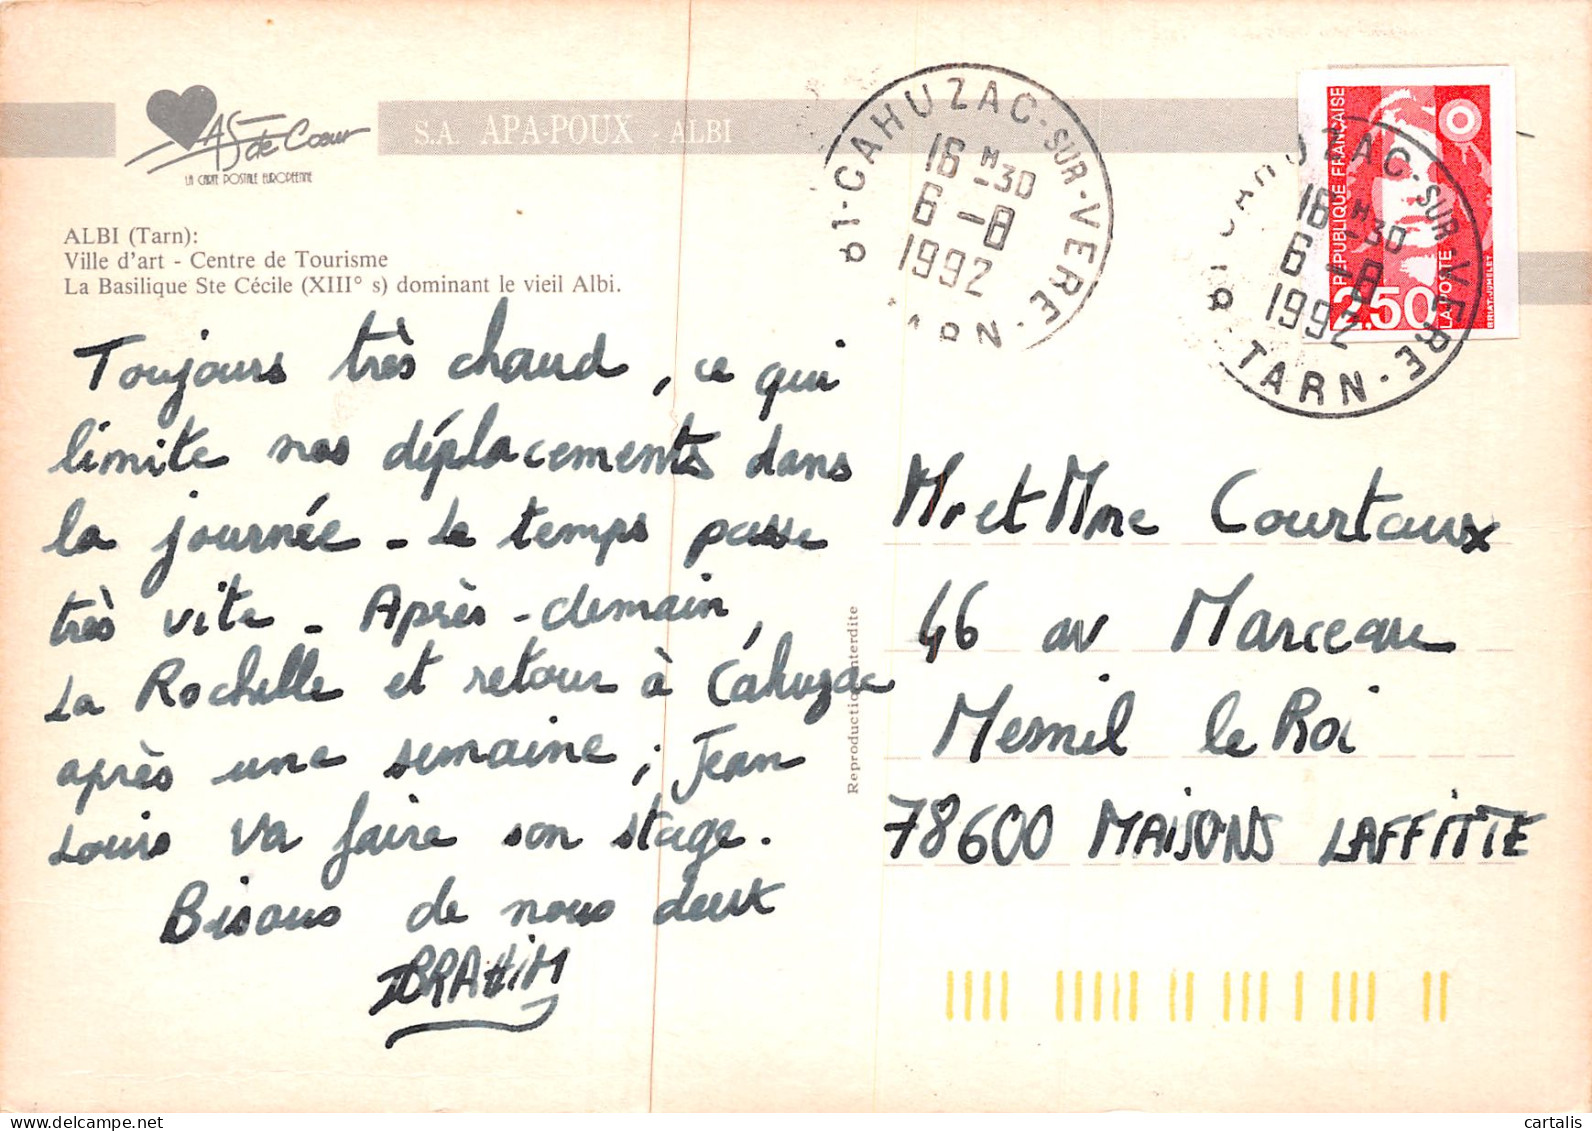 As de Cœur
LA CARTE POSTALE EUROPÉENNE
S.A. APA-POUX - ALBI
ALBI (Tarn):
Ville d'art - Centre de Tourisme
La Basilique Ste Cécile (XIII° s) dominant le vieil Albi.
Toujours très chaud, ce qui
limite nos déplacements dans
la journée - Le temps passe
très vite - Après-demain,
La Rochelle et retour à Cahuzac
après une semaine ; Jean
Louis va faire son stage.
Bisous de nous deux
IBRAHIM
Reproduction interdite
81-CAHUZAC-SUR-VERE
16 H -30
6 -8
1992
TARN
RÉPUBLIQUE FRANÇAISE
2,50
LA POSTE
BRIAT-JUMELET
CAHUZAC-SUR-VERE
16 H -30
6 -8
1992
TARN
Mr et Mme Courtaux
46 av Marceau
Mesnil le Roi
78600 MAISONS LAFFITTE
www.delcampe.net
cartalis